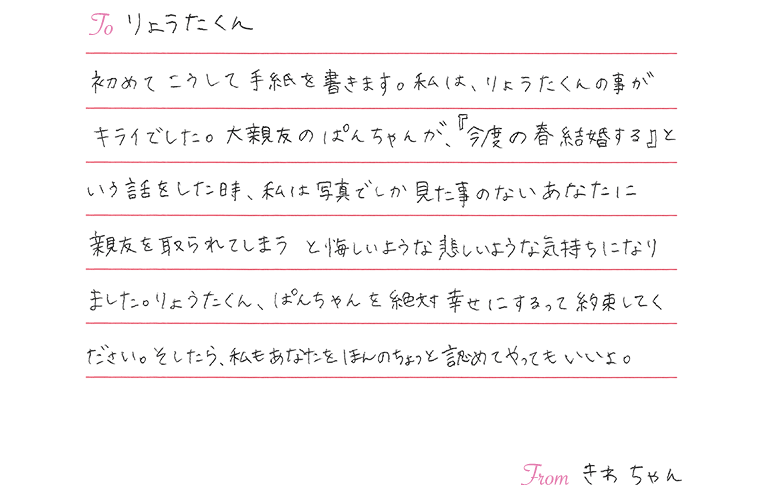 To りょうたくん
初めてこうして手紙を書きます。私は、りょうたくんの事が
キライでした。大親友のぱんちゃんが、『今度の春結婚する』と
いう話をした時、私は写真でしか見た事のないあなたに
親友を取られてしまう と悔しいような悲しいような気持ちになり
ました。りょうたくん、ぱんちゃんを絶対幸せにするって約束してく
ださい。そしたら、私もあなたをほんのちょっと認めてやってもいいよ。
From きわちゃん